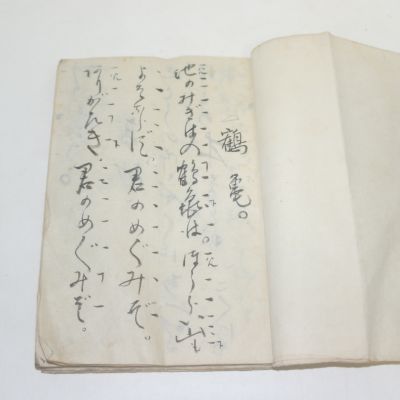 一鶴亀。
池のみぎはの鶴亀は。ほうらい山も
よそならず。君のめぐみぞ。
ありがたき。君のめぐみぞ。